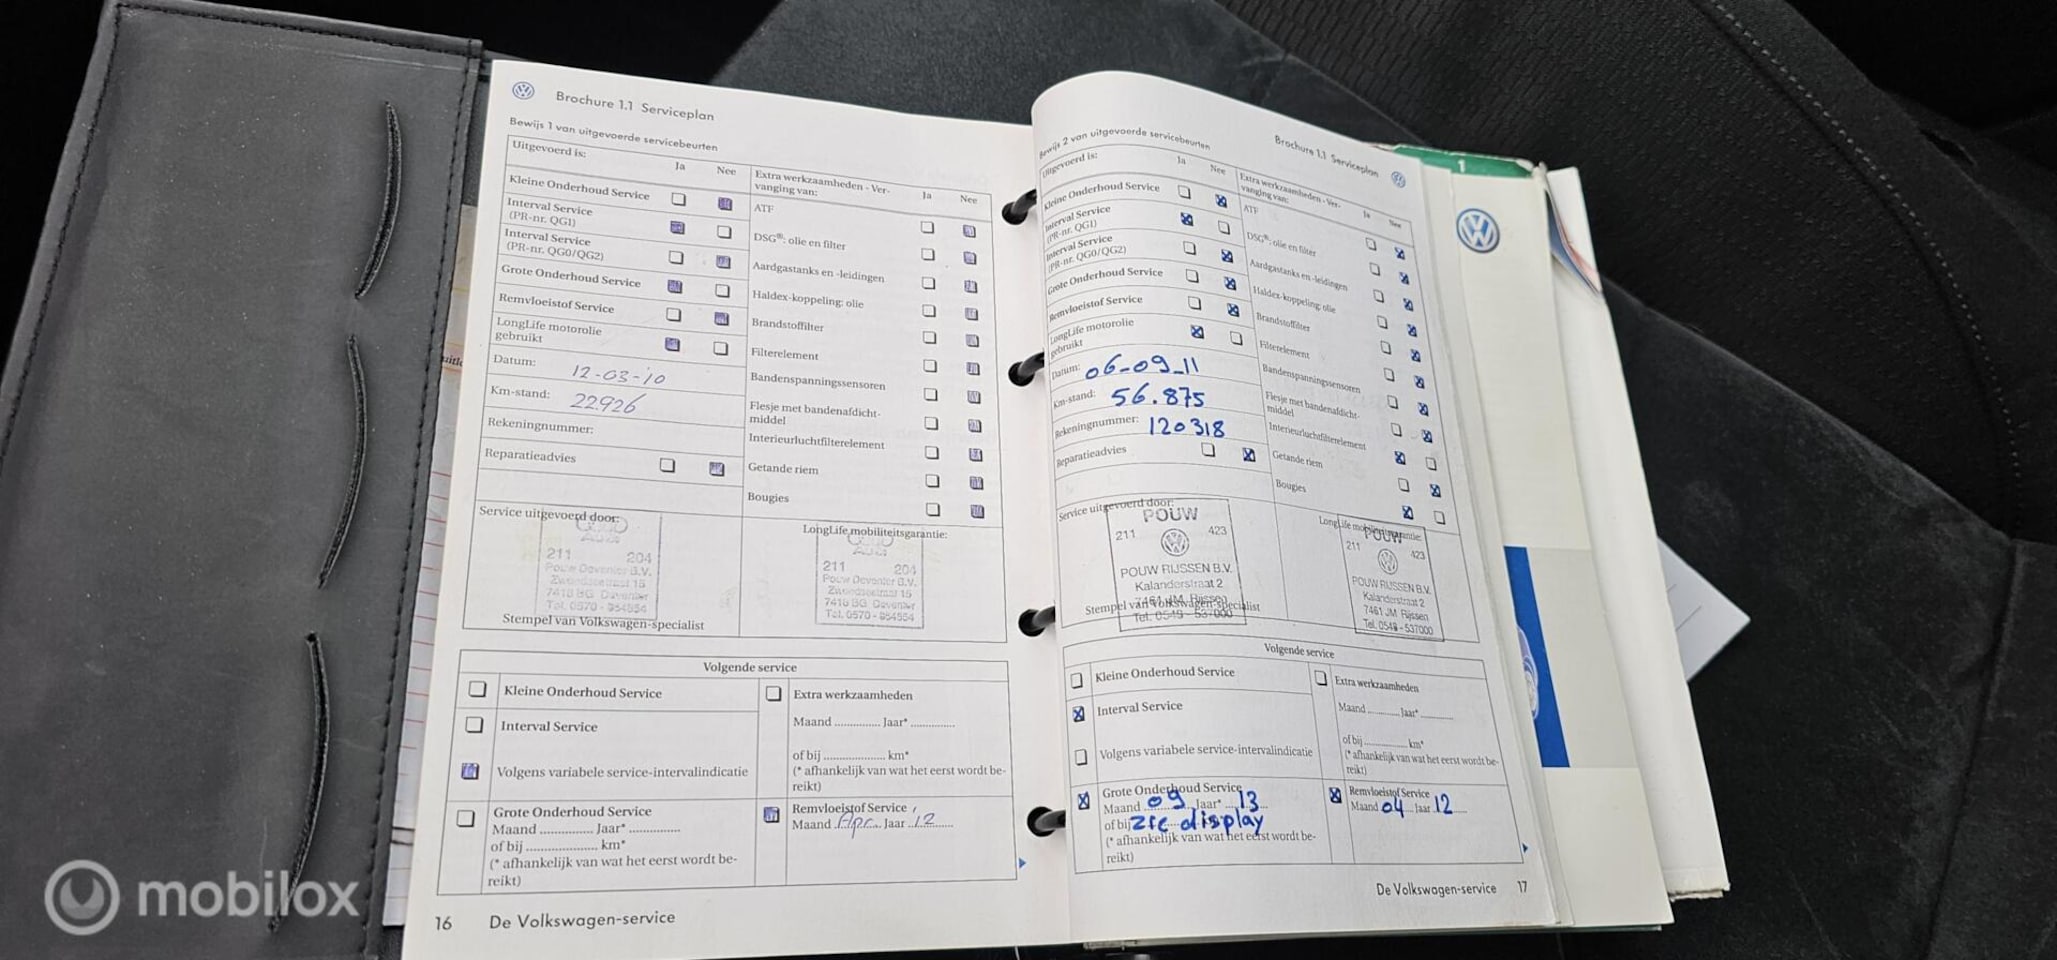 Brochure 1.1 Serviceplan
Bewijs 1 van uitgevoerde servicebeurten
Uitgevoerd is:
Ja
Nee
Kleine Onderhoud Service
Interval Service
(PR-nr. QG1)
Interval Service
(PR-nr. QG0/QG2)
Grote Onderhoud Service
Remvloeistof Service
LongLife motorolie
gebruikt
Datum: 12-03-'10
Km-stand: 22926
Rekeningnummer:
Reparatieadvies
Extra werkzaamheden - Ver-
vanging van:
Ja
Nee
ATF
DSG®: olie en filter
Aardgastanks en -leidingen
Haldex-koppeling: olie
Brandstoffilter
Filterelement
Bandenspanningssensoren
Flesje met bandenafdicht-
middel
Interieurluchtfilterelement
Getande riem
Bougies
Service uitgevoerd door:
211 204
Pouw Deventer B.V.
7418 BG Deventer
Tel. 0570 - 854554
Stempel van Volkswagen-specialist
LongLife mobiliteitsgarantie:
211 204
Pouw Deventer B.V.
7418 BG Deventer
Tel. 0570 - 854554
Volgende service
Kleine Onderhoud Service
Interval Service
Volgens variabele service-intervalindicatie
Grote Onderhoud Service
Maand ............... Jaar* ...............
of bij ..................... km*
(* afhankelijk van wat het eerst wordt be-
reikt)
Extra werkzaamheden
Maand ............... Jaar* ...............
of bij ..................... km*
(* afhankelijk van wat het eerst wordt be-
reikt)
Remvloeistof Service
Maand Apr. Jaar '12
16 De Volkswagen-service
Brochure 1.1 Serviceplan
Bewijs 2 van uitgevoerde servicebeurten
Uitgevoerd is:
Ja
Nee
Kleine Onderhoud Service
Interval Service
(PR-nr. QG1)
Interval Service
(PR-nr. QG0/QG2)
Grote Onderhoud Service
Remvloeistof Service
LongLife motorolie
gebruikt
Datum: 06-09-11
Km-stand: 56.875
Rekeningnummer: 120318
Reparatieadvies
Extra werkzaamheden - Ver-
vanging van:
Ja
Nee
ATF
DSG®: olie en filter
Aardgastanks en -leidingen
Haldex-koppeling: olie
Brandstoffilter
Filterelement
Bandenspanningssensoren
Flesje met bandenafdicht-
middel
Interieurluchtfilterelement
Getande riem
Bougies
Service uitgevoerd door:
POUW
211 423
POUW RIJSSEN B.V.
Kalanderstraat 2
7461 JM Rijssen
Stempel van Volkswagen-specialist
Tel. 0548 - 537000
LongLife mobiliteitsgarantie:
POUW
211 423
POUW RIJSSEN B.V.
Kalanderstraat 2
7461 JM Rijssen
Tel. 0548 - 537000
Volgende service
Kleine Onderhoud Service
Interval Service
Volgens variabele service-intervalindicatie
Grote Onderhoud Service
Maand 09 Jaar* 13
of bij zie display
(* afhankelijk van wat het eerst wordt be-
reikt)
Extra werkzaamheden
Maand ............ Jaar* ............
of bij ................ km*
(* afhankelijk van wat het eerst wordt be-
reikt)
Remvloeistof Service
Maand 04 Jaar 12
De Volkswagen-service 17
1
mobilox